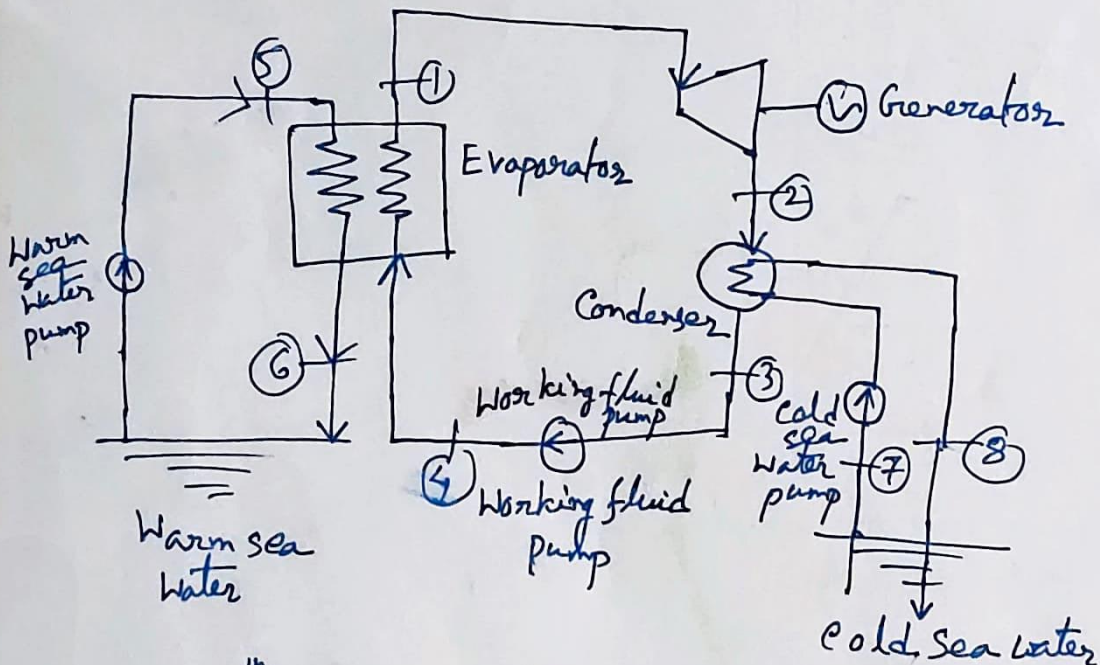 5
1
Generator
Evaporator
2
Warm
sea
water
pump
Condenser
6
3
Working fluid
pump
Cold
sea
water
pump
7
8
4
Working fluid
pump
Warm sea
water
Cold sea water